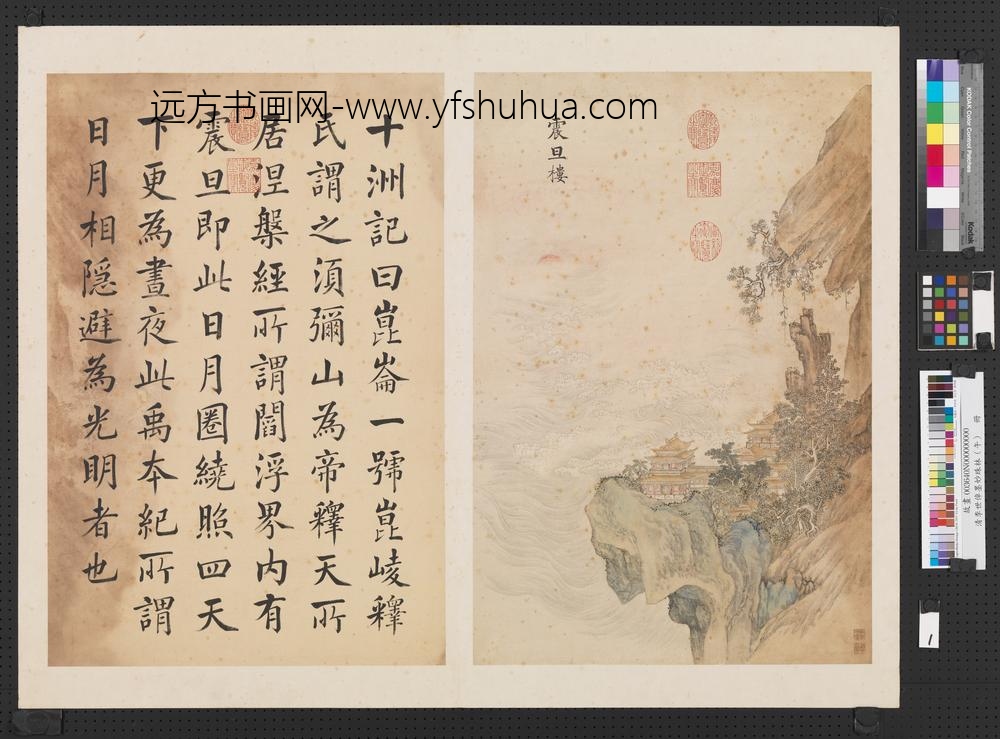 远方书画网-www.yfshuhua.com
十洲記曰崑崙一號崑崚釋
氏謂之須彌山為帝釋天所
居涅槃經所謂閻浮界内有
震旦即此日月圈繞照四天
下更為晝夜此禹本紀所謂
日月相隱避為光明者也
震旦樓
KODAK Color Control Patches
Kodak
故畫003640N000000000
清李世倬墨妙珠林（午） 冊
1